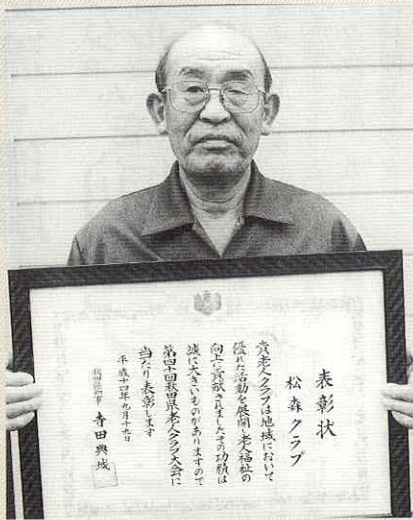 表彰状
松森クラブ
貴老人クラブは地域において
優れた活動を展開し老人福祉の
向上に貢献されましたその功績は
誠に大きいものがありますので
第四十回秋田県老人クラブ大会に
当たり表彰します
平成十四年九月十九日
秋田県知事 寺田典城